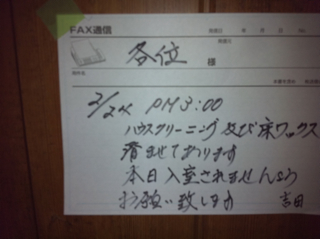 FAX通信
各位 様
2/24 PM3:00
ハウスクリーニング及び床ワックス
済ませております
本日入室されませんよう
お願い致します
吉田